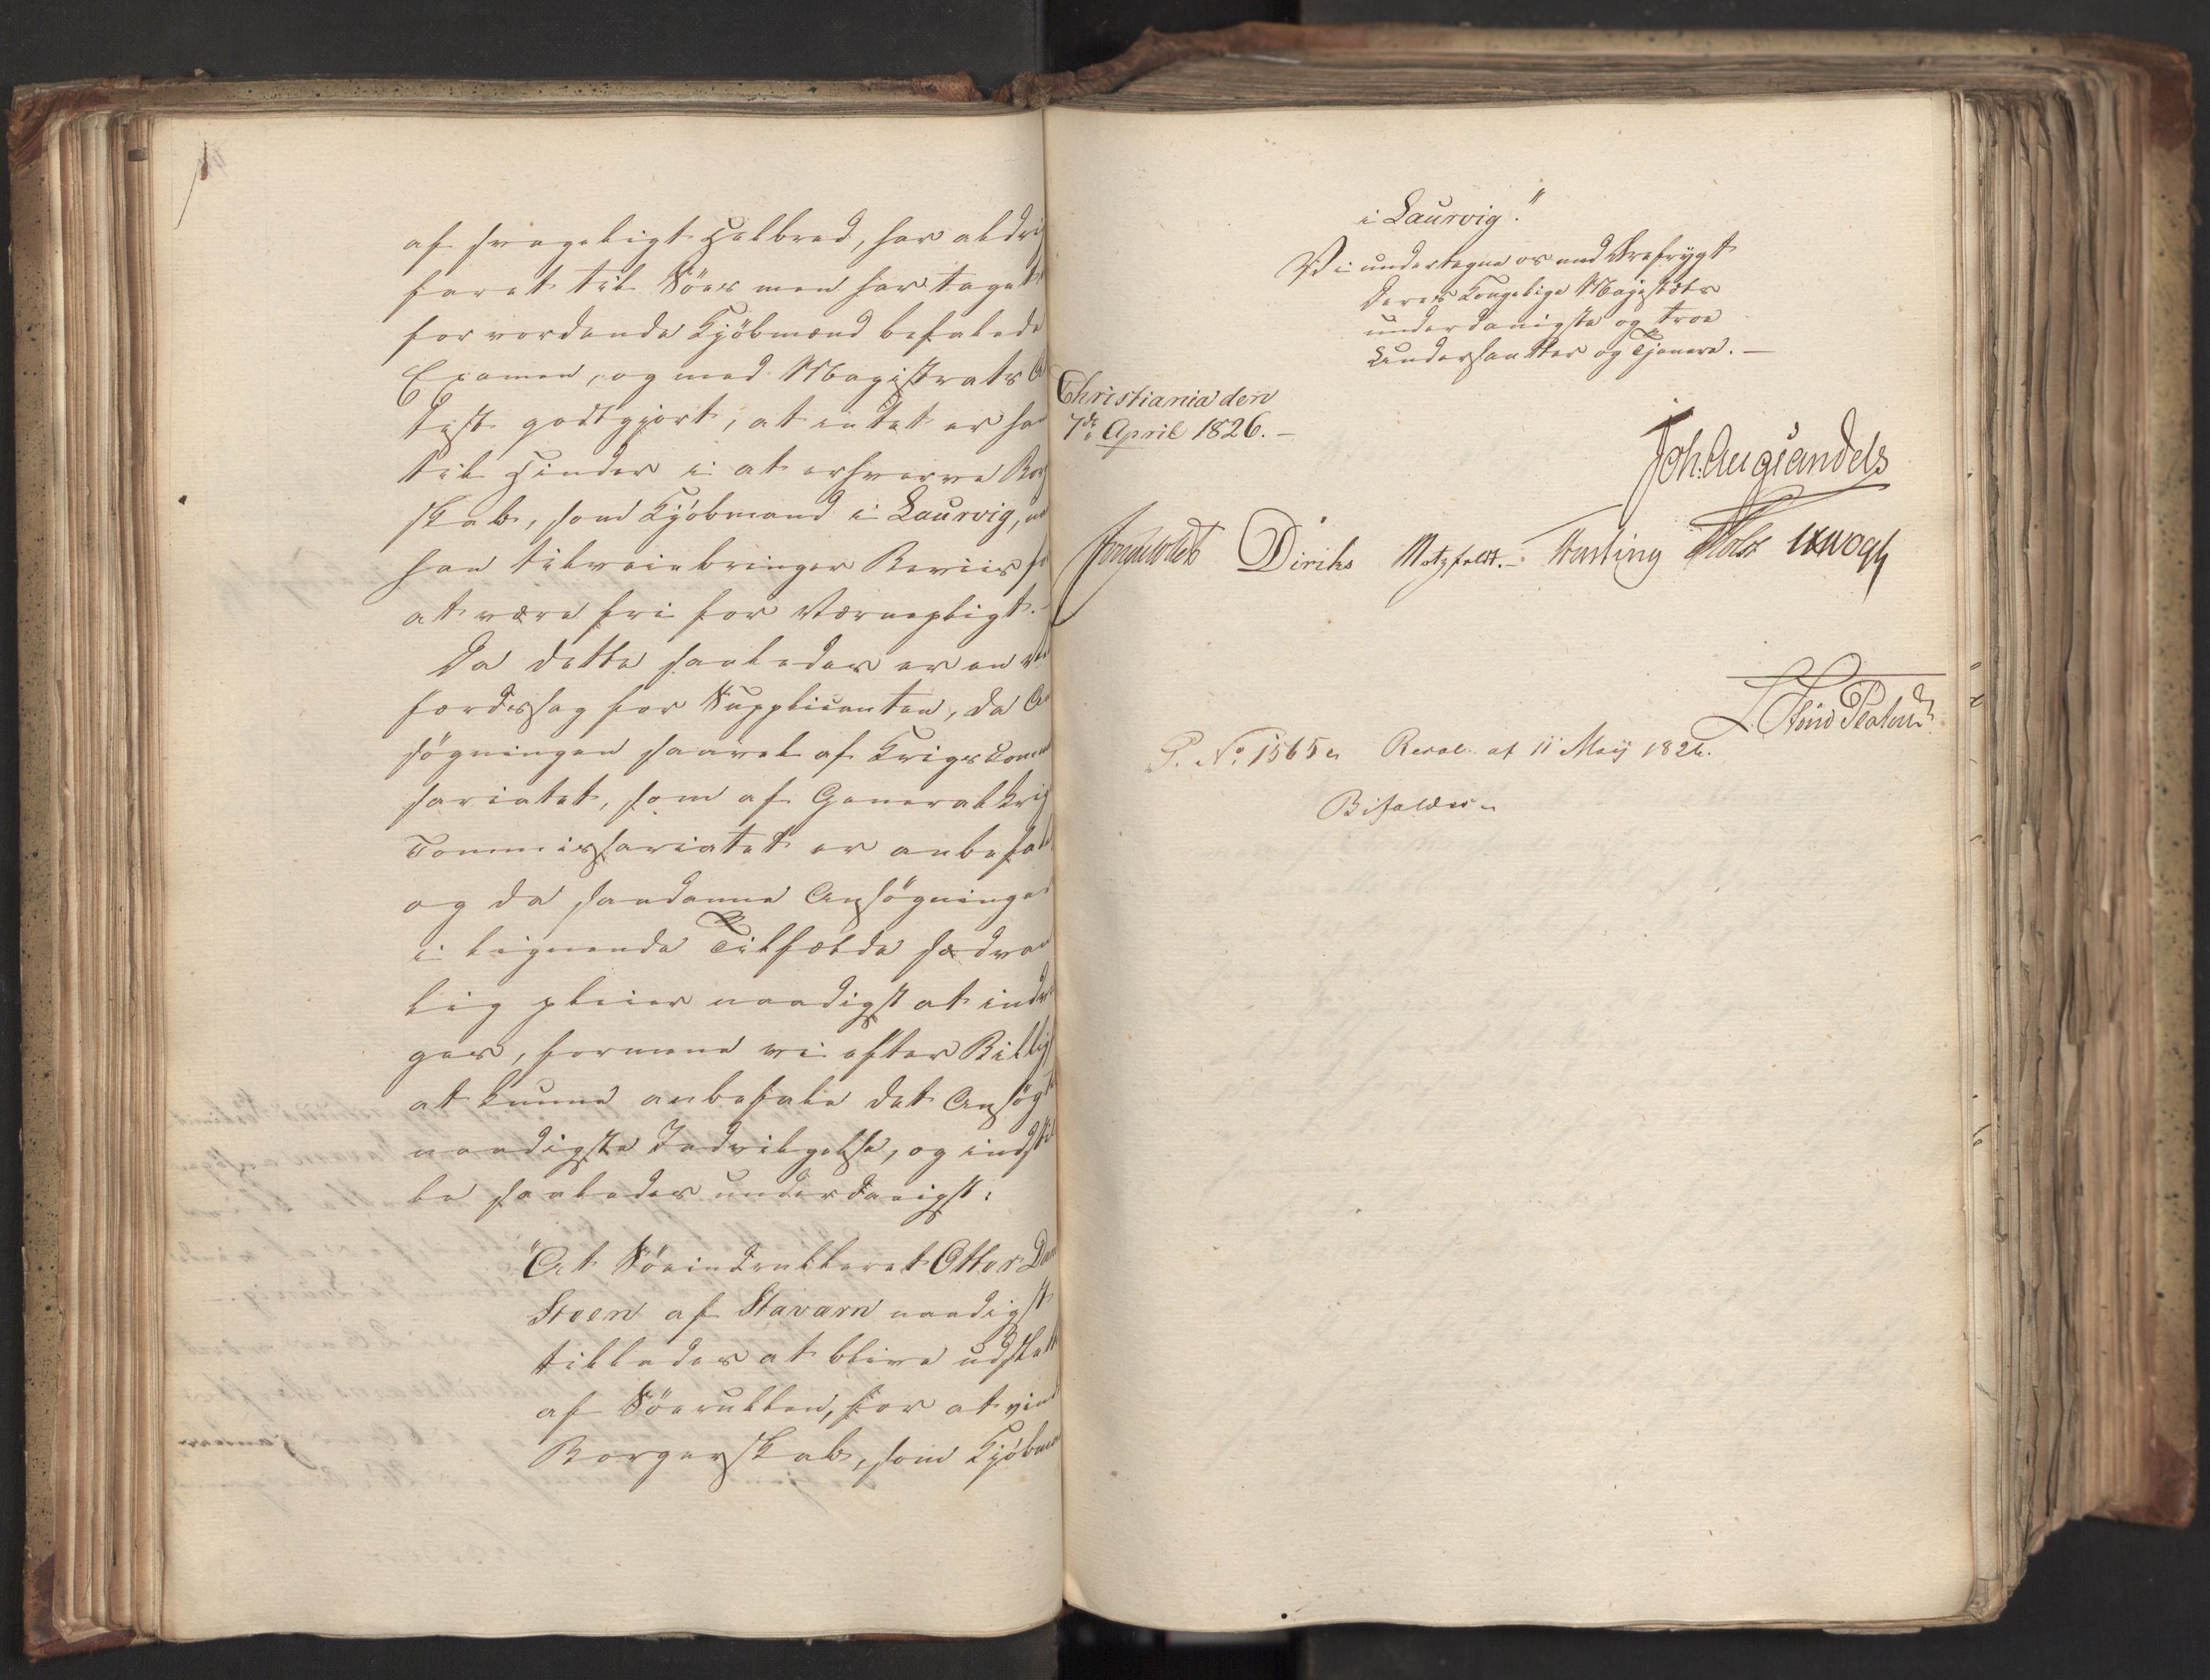 af svageligt Helbred, har aldrig
faret til Söes men har taget
for vordende Kjöbmænd befalede
Examen, og med Magistrats A
test godtgjort, at intet er ham
til Hinder i at erhverve Borg
skab, som Kjöbmand i Laurvig, naar
han tilveiebringer Beviis for
at være fri for Værnepligt.
Da dette saaledes er en Vel
færdssag for Supplicanten, da An
sögningen saavel af Krigscommis
sariatet, som af Generalkrigs
Commissariatet er anbefalet
og da saadanne Ansögninger
i lignende Tilfælde sædvan
lig pleier naadigst at indvil
ges, formene vi efter Billigh
at kunne anbefale det Ansögte
naadigste Indvilgelse, og indstil
le saaledes underdanigst:
"At Söeindrulleret Otter Dan
Steen af Stavarn naadigst
tillades at blive udslettet
af Söerullen, for at vinde
Borgerskab, som Kjöbmand
i Laurvig."
Vi undertegne os med Ærefrygt
Deres Kongelige Majestæts
underdanigste og troe
Undersaatter og Tjenere. —
Christiania den
7de April 1826. —
Joh. Aug. Sandels
Diriks Motzfeldt. — Fasting Holst
P. No 1565. Resol. af 11 Maij 1826.
Bifaldes.